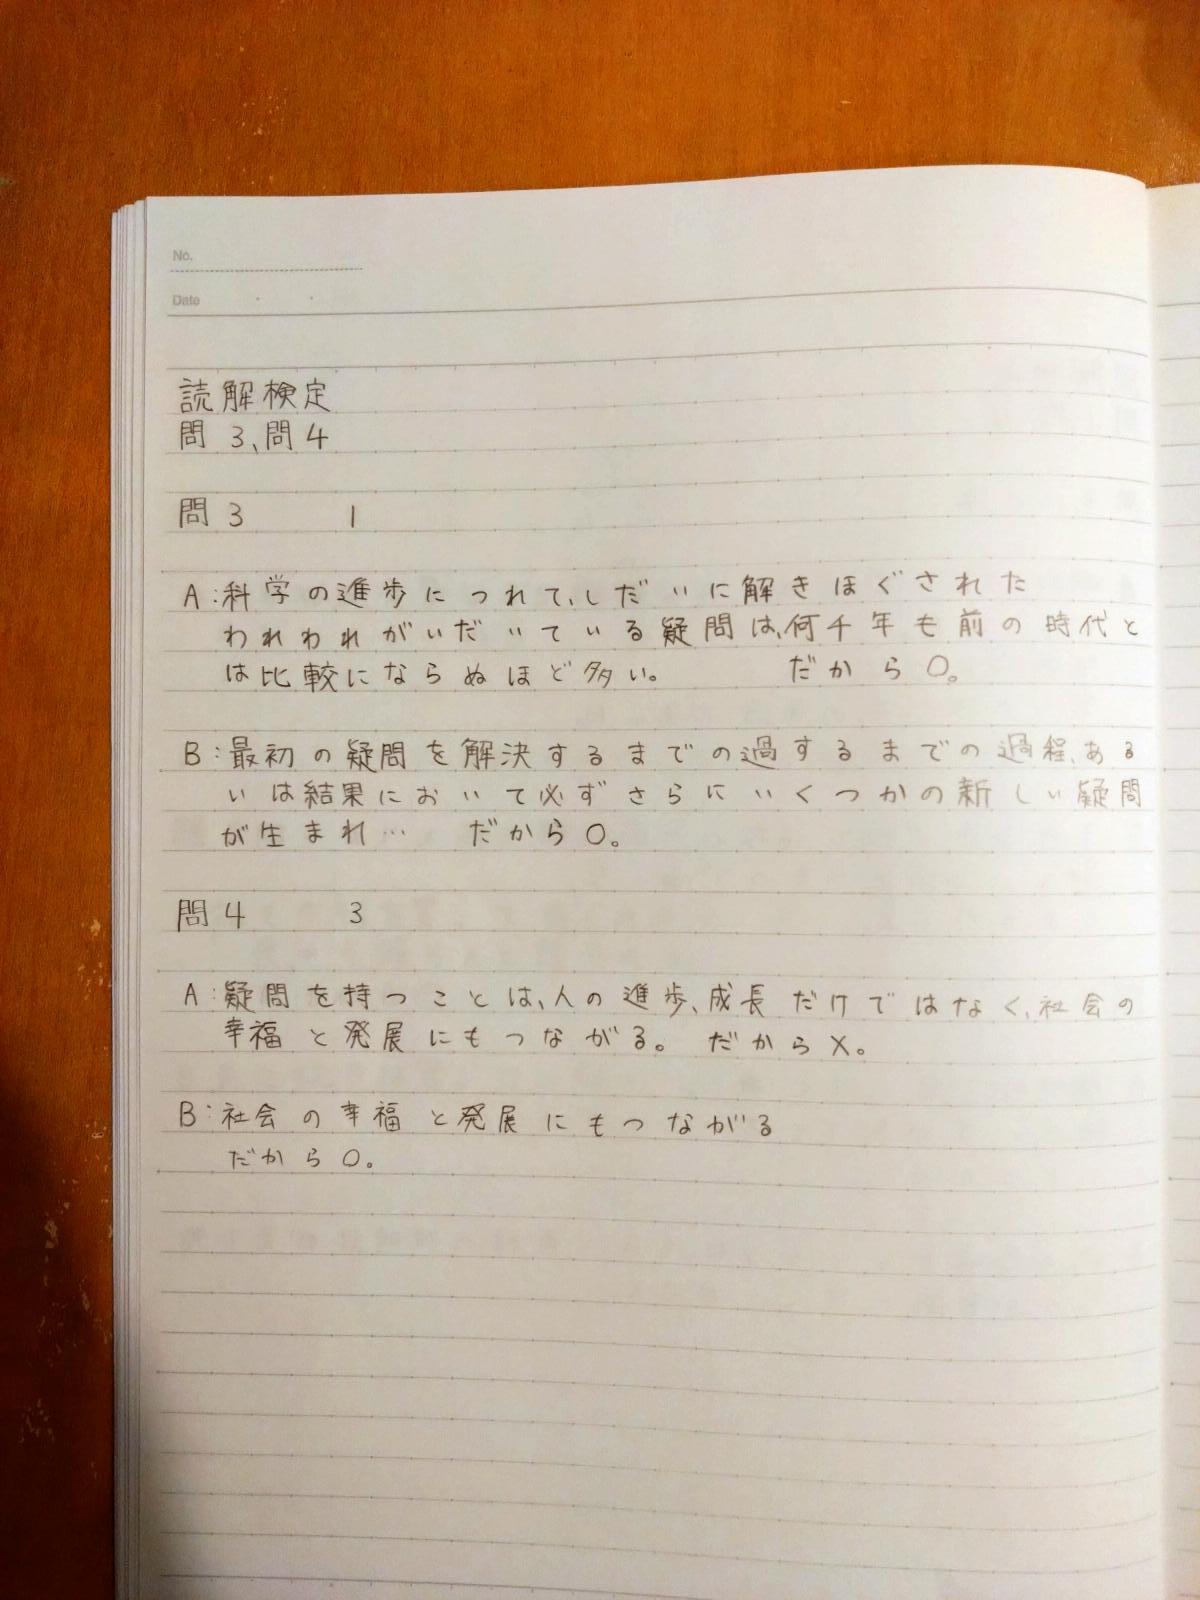 No.
Date
読解検定
問3、問4
問3 1
A:科学の進歩につれて、しだいに解きほぐされた
われわれがいだいている疑問は、何千年も前の時代と
は比較にならぬほど多い。 だから〇。
B:最初の疑問を解決するまでの過するまでの過程、ある
いは結果において必ずさらにいくつかの新しい疑問
が生まれ… だから〇。
問4 3
A:疑問を持つことは、人の進歩、成長だけではなく、社会の
幸福と発展にもつながる。 だからX。
B:社会の幸福と発展にもつながる
だから〇。